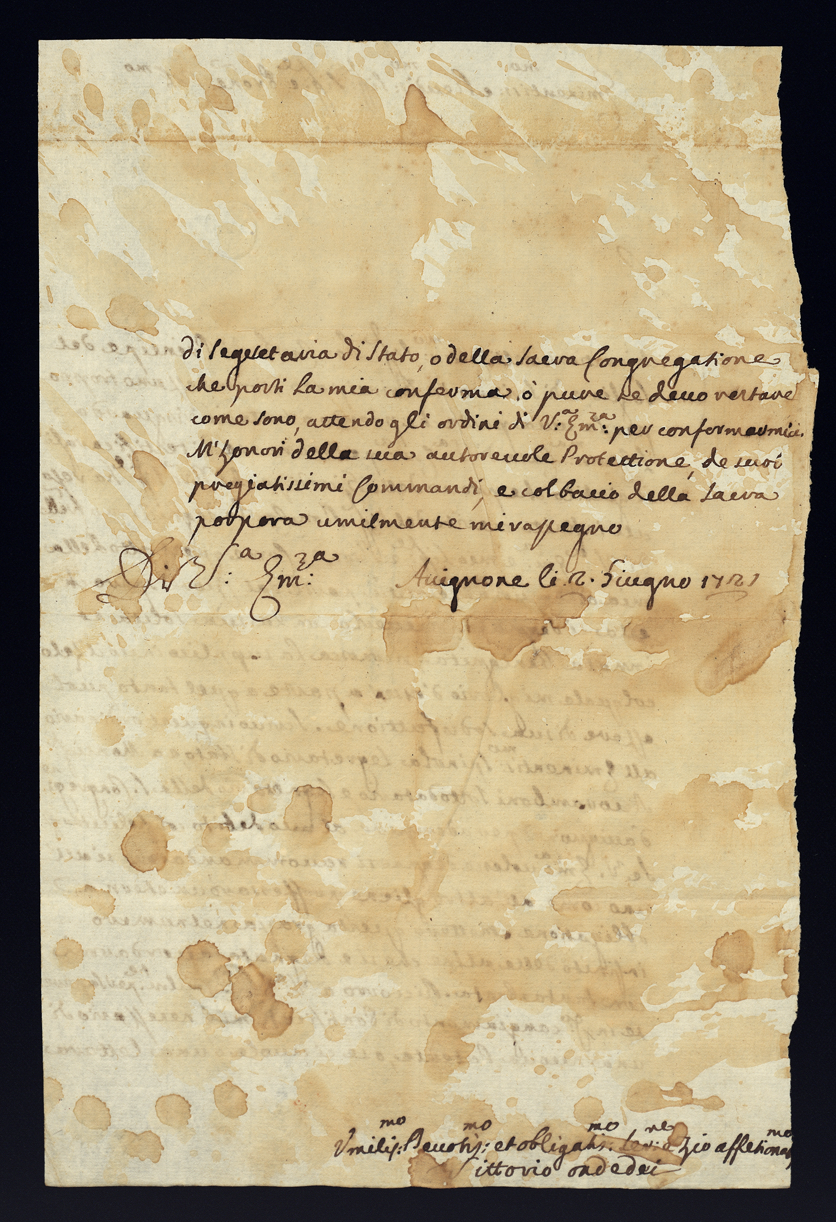 di Segretaria di Stato, o della Sacra Congregatione
che porti la mia conferma, ò pure se devo restare
come sono, attendo gli ordini di V:ᵃ Emᶻᵃ: per conformarmici.
M'honori della sua autorevole Protettione, de suoi
pregiatissimi Commandi, e col bacio della Sacra
porpora umilmente mi rassegno
Di V:ᵃ Emᶻᵃ:
Avignone li 2. Giugno 1721
Umilisᵐᵒ: Devotisᵐᵒ: et obligatisᵐᵒ: Serʳᵉ e Zio affetionatᵐᵒ
Vittorio Ondedei